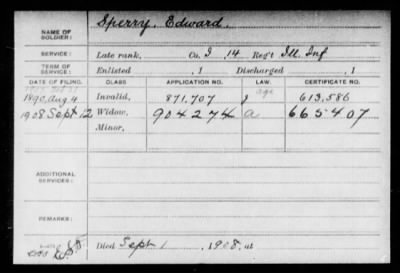 NAME OF SOLDIER: Sperry, Edward.
SERVICE: Late rank, Co. I 14 Reg't Ill. Inf
TERM OF SERVICE: Enlisted , 1 Discharged , 1
DATE OF FILING. CLASS APPLICATION NO. LAW. CERTIFICATE NO.
age
1890, Aug 4 Invalid, 871,707 613,586
1908 Sept 12 Widow, 904274 a 665407
Minor,
ADDITIONAL SERVICES:
REMARKS:
Died Sept 1, 1908, at